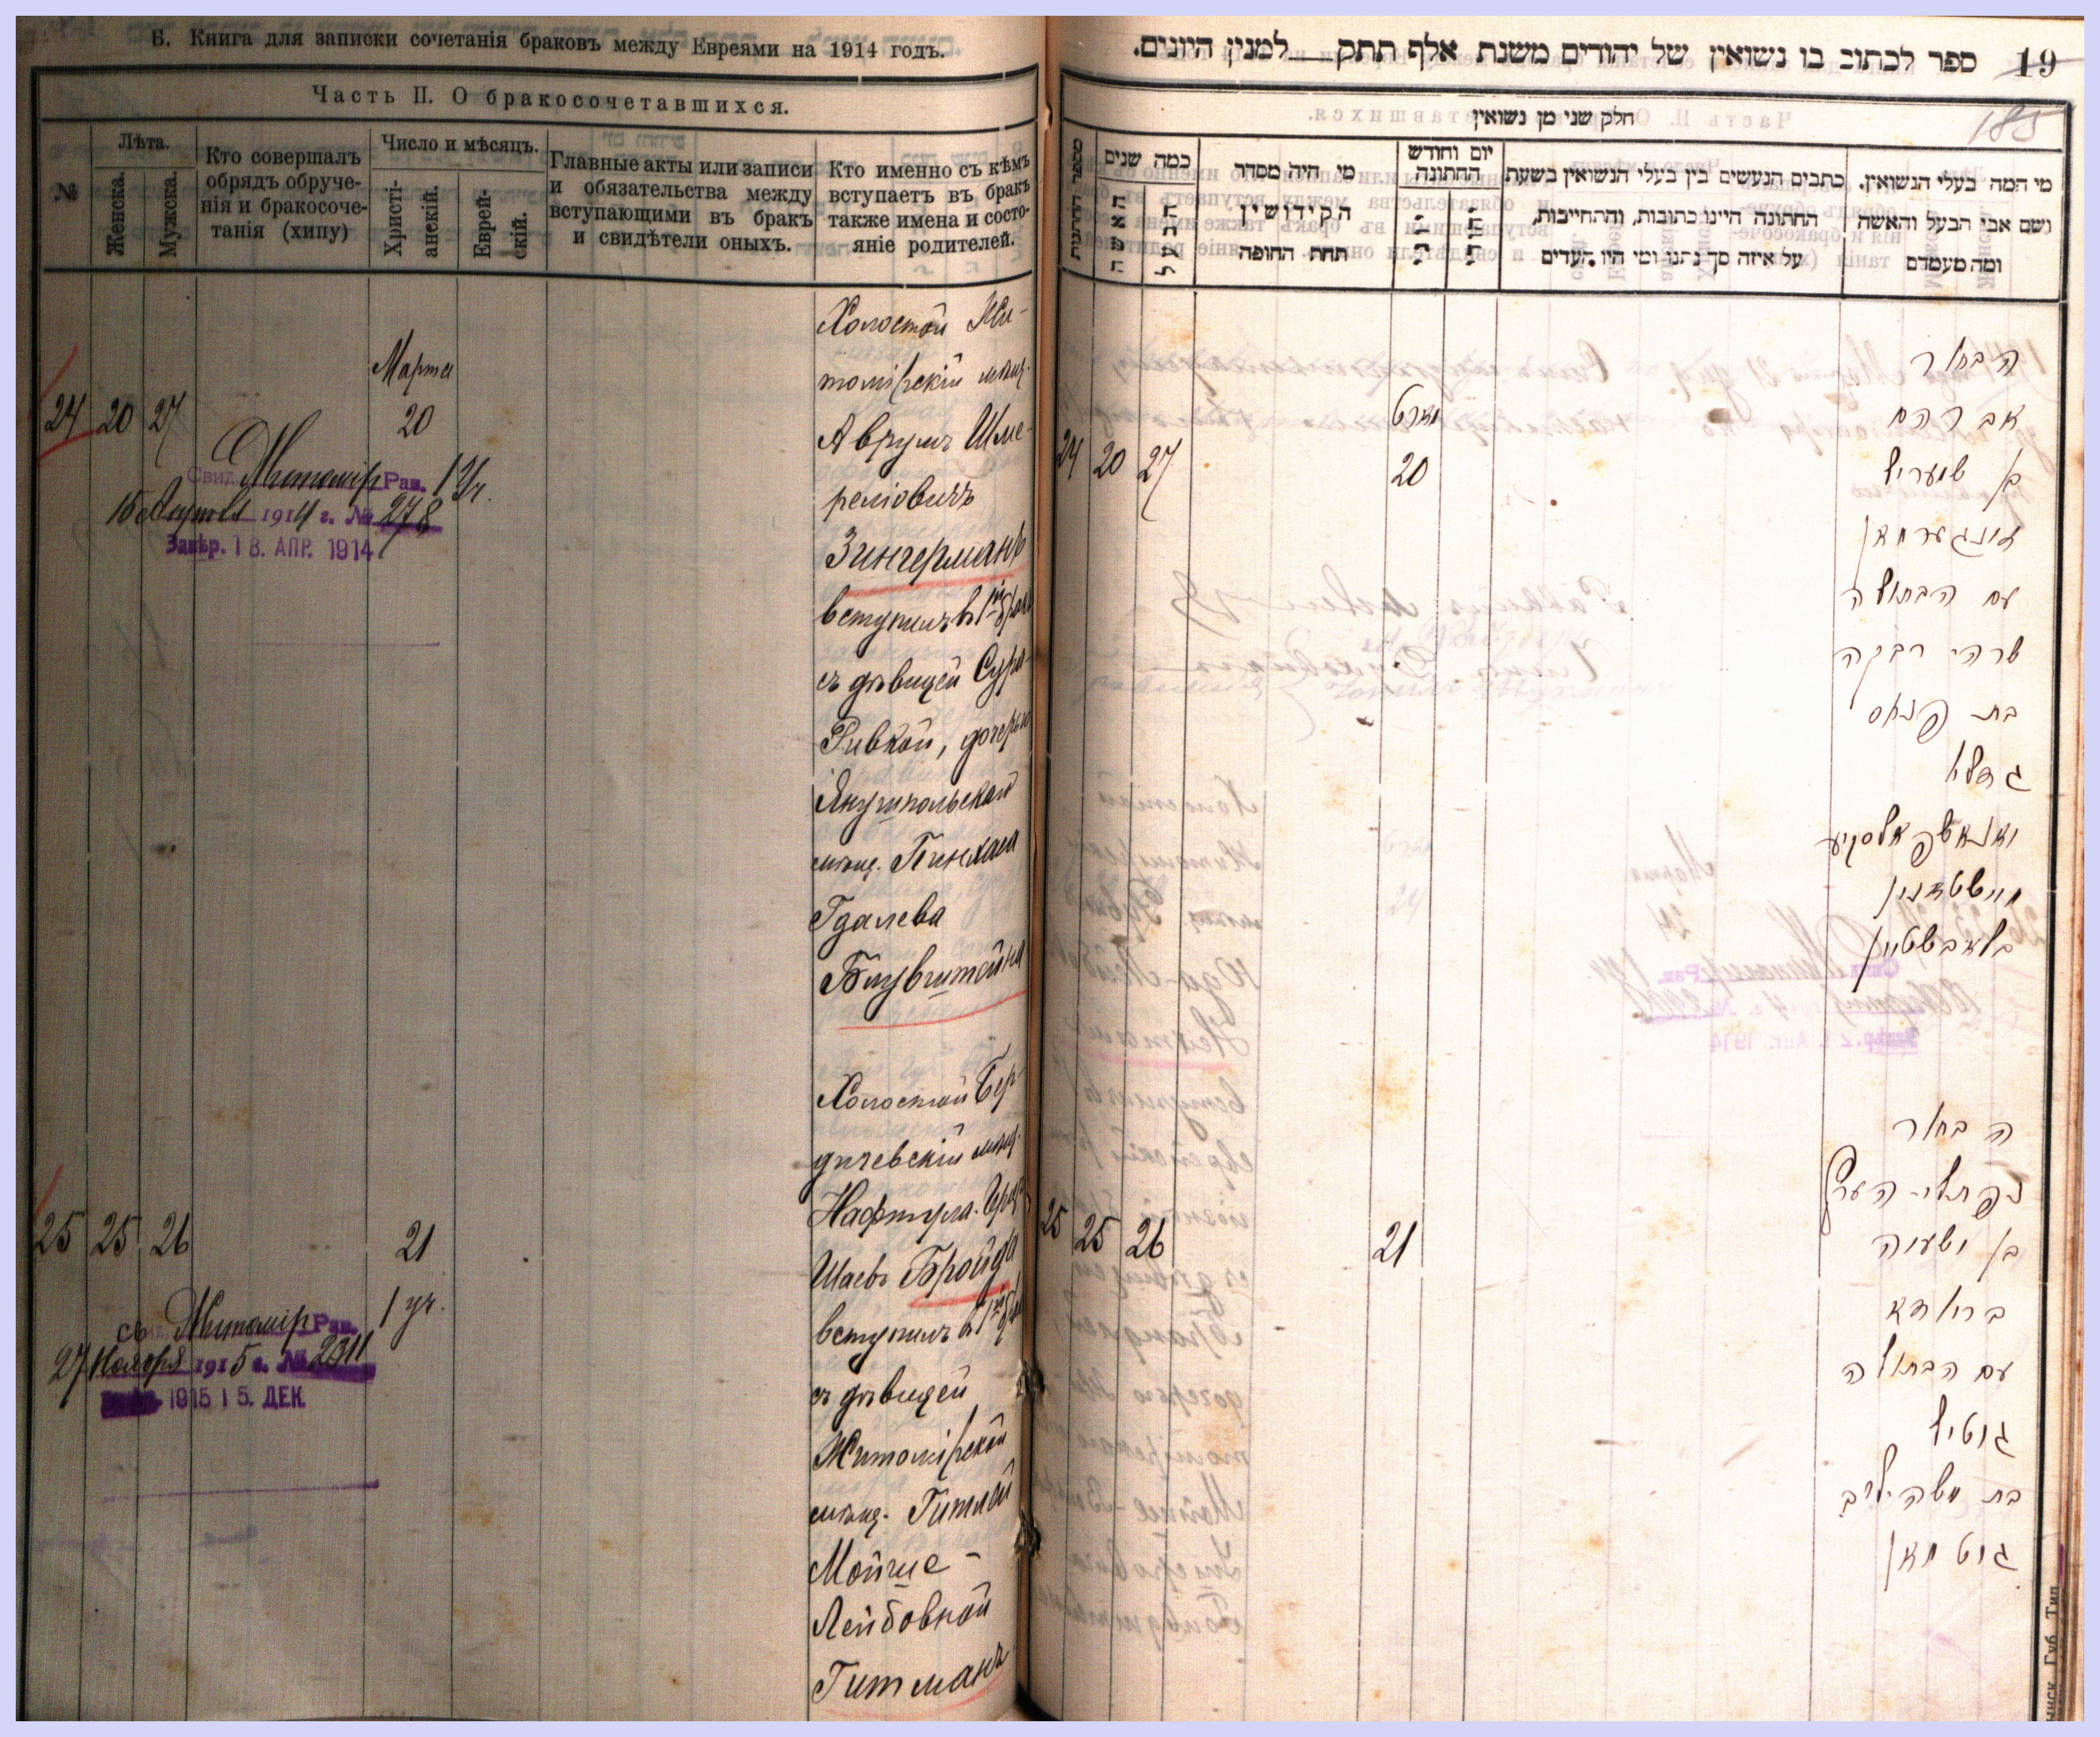 Б. Книга для записки сочетанія браковъ между Евреями на 1914 годъ.
Часть II. О бракосочетавшихся.
№
Лѣта.
Женска.
Мужска.
Кто совершалъ
обрядъ обруче-
нія и бракосоче-
танія (хипу)
Число и мѣсяцъ.
Христі-
анскій.
Еврей-
скій.
Главные акты или записи
и обязательства между
вступающими въ бракъ
и свидѣтели оныхъ.
Кто именно съ кѣмъ
вступаетъ въ бракъ
также имена и состо-
яніе родителей.
24 20 27
Марта
20
Свид. Житомир. Рав. 1 уч.
15 Апреля 1914 г. № 278
Завѣр. 18. АПР. 1914
Холостой Жи-
томірскій мѣщ.
Аврумъ Шме-
реліовичъ
Зингерманъ
вступилъ въ 1й бракъ
съ дѣвицей Сура-
Ривкой, дочерью
Янушпольскаго
мѣщ. Пинхаса
Гдалева
Блувштейна
25 25 26
21
Св. Житомір Рав. 1 уч.
27 Ноября 1915 г. № 2311
1915 15. ДЕК
Холостой Бер-
дичевскій мѣщ.
Нафтула-Герц
Шаевъ Бройда
вступилъ въ 1й бракъ
съ дѣвицей
Житомірской
мѣщ. Гитлей
Мойше-
Лейбовной
Гитманъ
19
ספר לכתוב בו נשואין של יהודים משנת אלף תתק למנין היונים.
185
חלק שני מן נשואין
מספר החתנות
כמה שנים
האשה
הבעל
מי היה מסדר
הקידושין
תחת החופה
יום וחודש
החתונה
כתבים הנעשים בין בעלי הנשואין בשעת
החתונה היינו כתובות, והתחייבות,
על איזה סך נתנו ומי היו העדים
מי המה בעלי הנשואין.
ושם אבי הבעל והאשה
ומה מעמדם
24 20 27
מארט
20
הבחור
אברהם
בן שמעריל
זינגערמאן
עם הבתולה
שרה רבקה
בת פנחס
גדליא
יאנאשפאלסקיע
בלאבשטיין
25 25 26
21
הבחור
נפתלי הערץ
בן ישעיה
ברוידא
עם הבתולה
גיטיל
בת משה ליב
גוטמאן